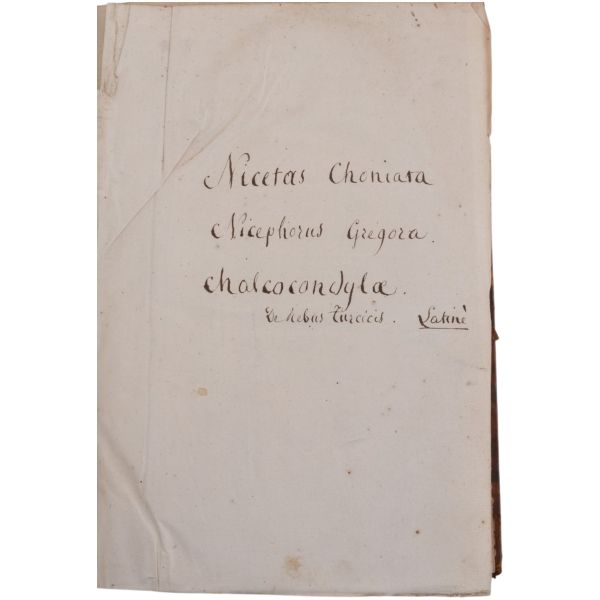 Nicetas Choniata
Nicephorus Gregora.
Chalcocondylæ.
De Rebus Turcicis. Latinè